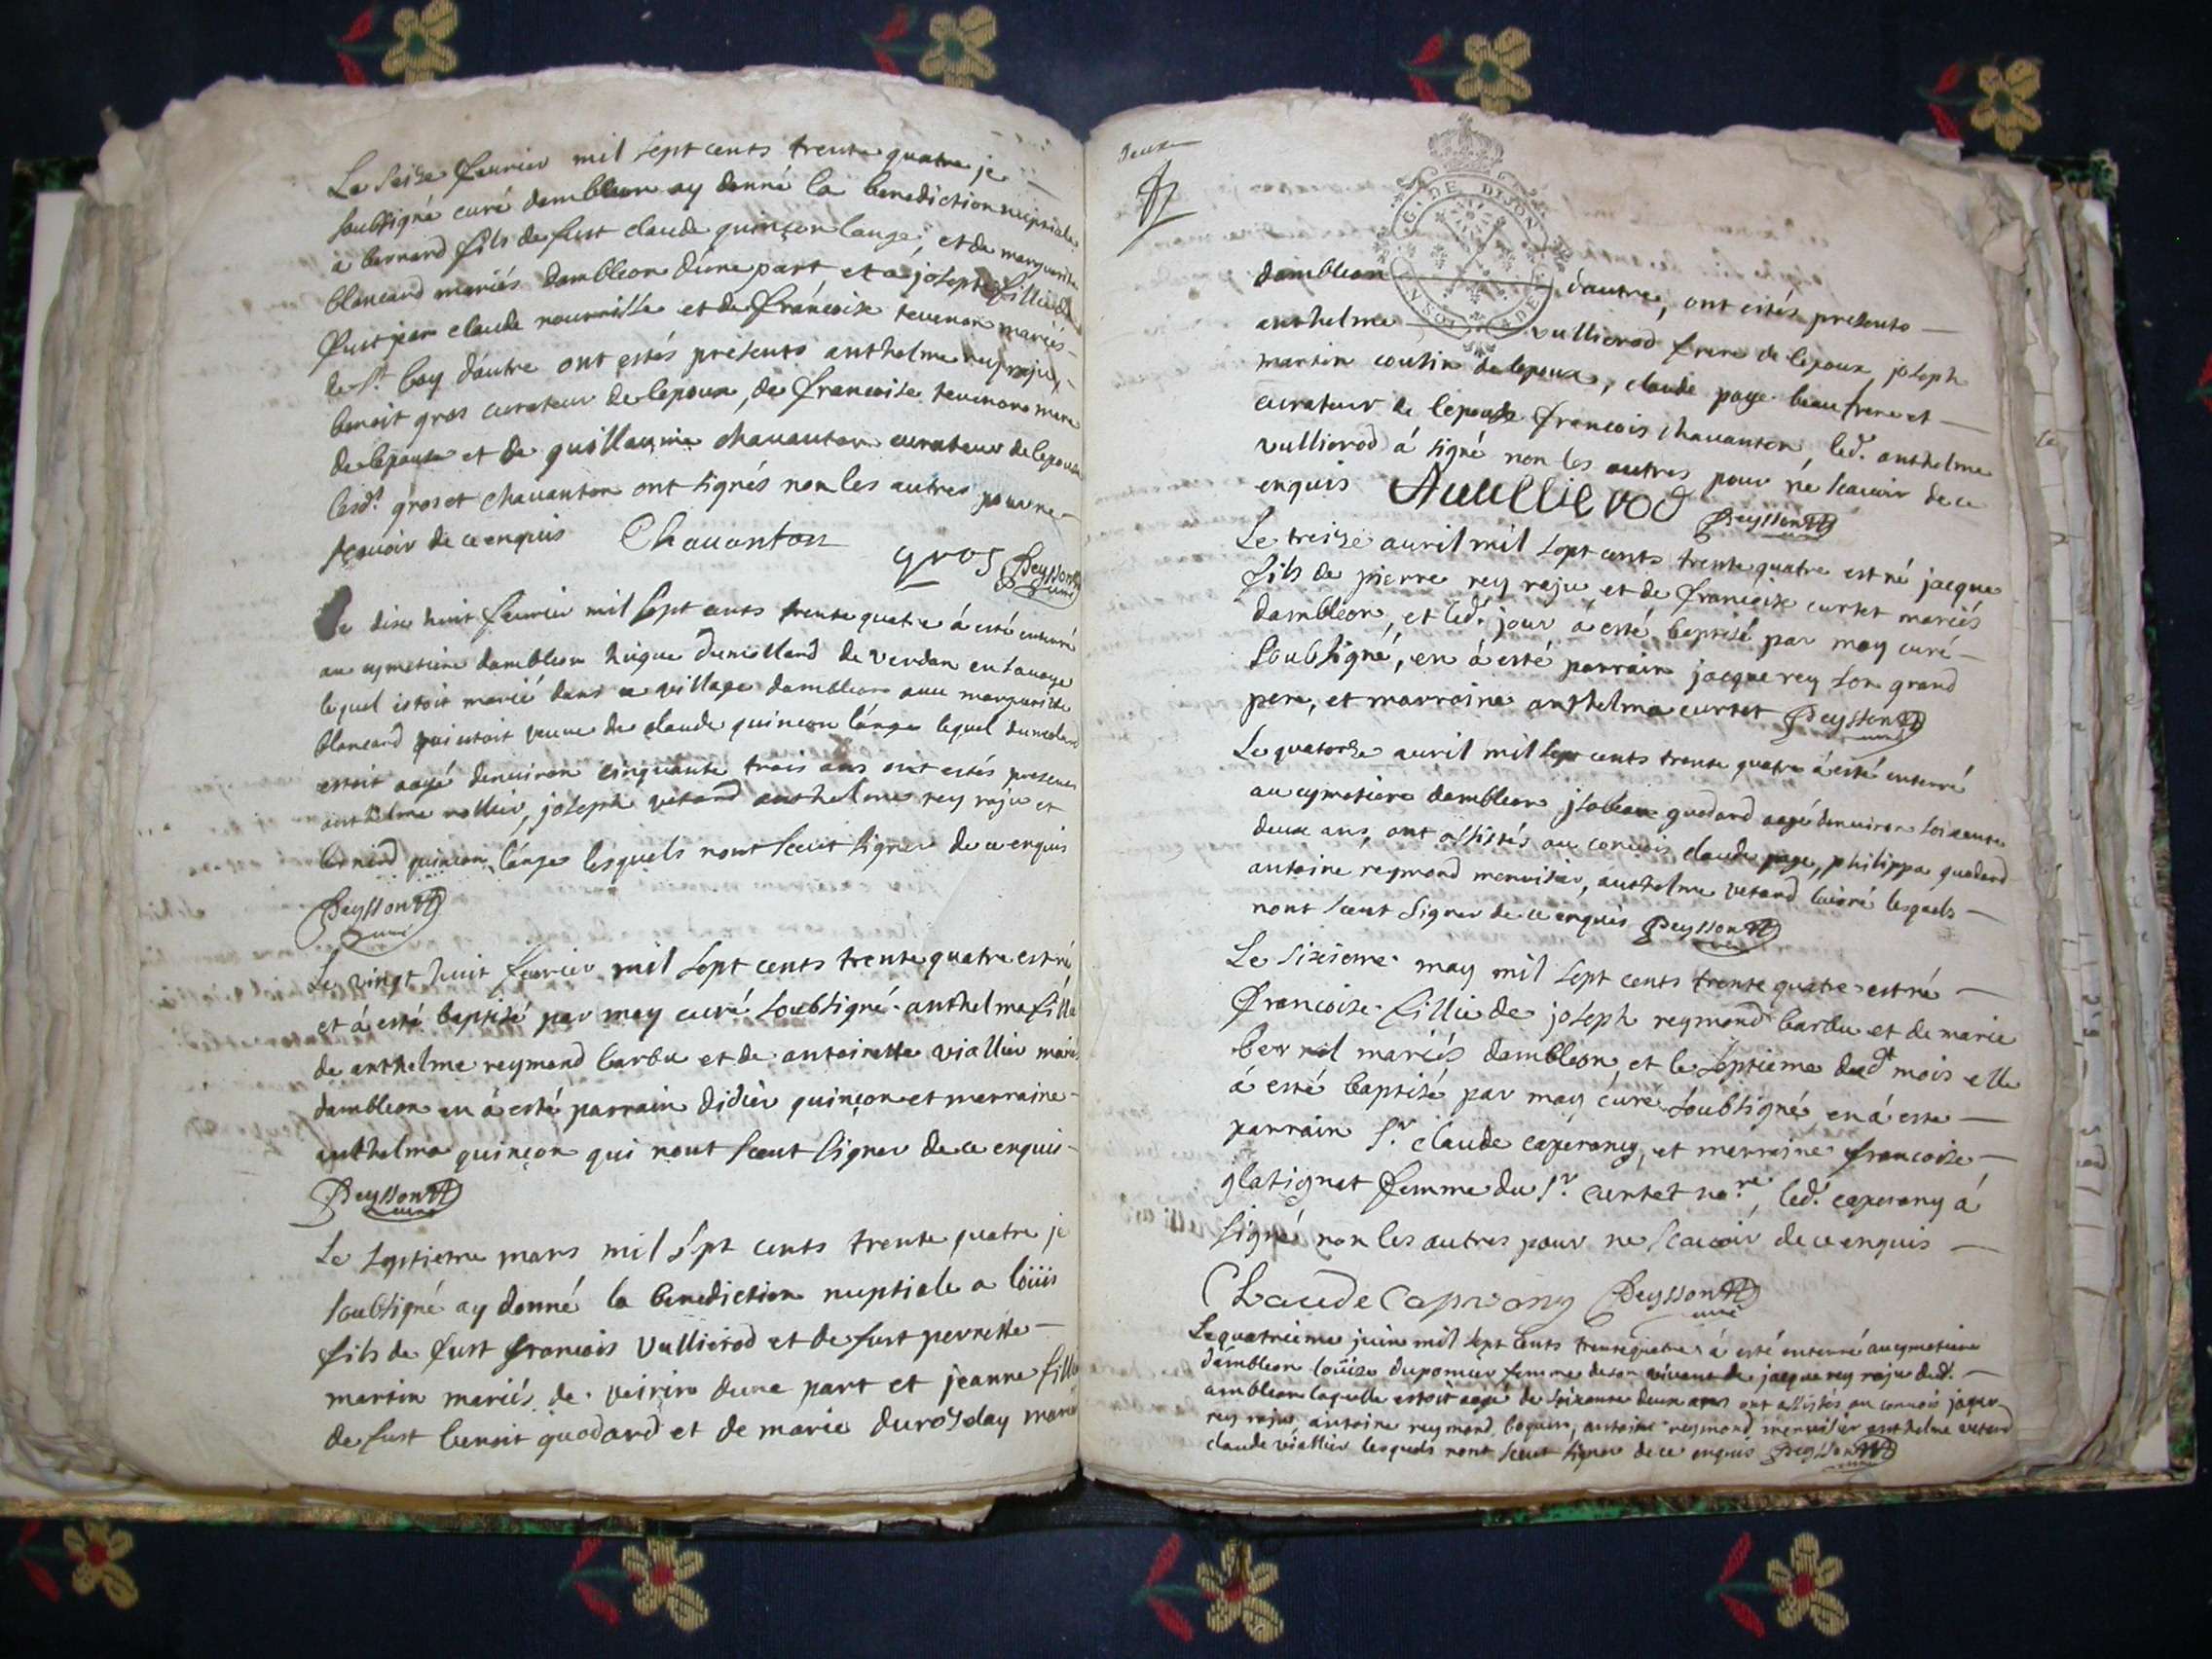 Le seize feurier mil sept cents trente quatre je
soubsigné curé dambleon ay donné la benediction nuptiale
a bernard fils de fust claude quinçon lange, et de marguerite
blancard mariés dambleon dune part et a josepte fillie de
fust jean claude nourrisse et de francoise teuenon mariés
de st boy dautre ont estés presents anthelme rey raju,
benoit gros curateur de lepoux, de francoise teuenon mere
de lepouse et de guillaume chauanton curateur de lepouse
lesd. gros et chauanton ont signés non les autres pour ne
scauoir de ce enquis Chauanton
gros Peysson
curé
Le dixe huit feurier mil sept cents trente quatre á esté enterré
au cymetiere dambleon hugue dumolland de verdan en sauoye
lequel estoit marié dans ce village dambleon auec marguerite
blancard qui estoit veuue de claude quincon lange lequel dumoland
estoit aagé denuiron cinquante trois ans ont estés presents
anthelme vollier, joseph vetard anthelme rey raju et
bernard quincon lange lesquels nont sceut signer de ce enquis
Peysson
curé
Le vingt huit feurier mil sept cents trente quatre est né
et á esté baptisé par moy curé soubsigné anthelme fille
de anthelme reymond barbu et de antoinette viallier mariés
dambleon en á esté parrain didier quinçon et marraine
anthelma quinçon qui nont sceut signer de ce enquis
Peysson
curé
Le septieme mars mil sept cents trente quatre je
soubsigné ay donné la benediction nuptiale a loüis
fils de fust francois Vullierod et de fust perrette
martin mariés de veirin dune part et jeanne fille
de fust benoit guodard et de marie durosday mariés
deux
G. DE DIJON
dambleon dautre, ont estés presents
anthelme vullierod frere de lepoux, joseph
martin cousin de lepoux, claude page beau frere et
curateur de lepouse francois chauanton, led. anthelme
vullierod á signé non les autres pour né scauoir de ce
enquis Auullierod Peysson
curé
Le treize auril mil sept cents trente quatre est né jacque
fils de pierre rey raju et de francoise curtet mariés
dambleon, et led. jour á esté baptisé par moy curé
soubsigné, en á esté parrain jacque rey son grand
pere, et marraine anthelma curtet Peysson
curé
Le quatorze auril mil sept cents trente quatre á esté enterré
au cymetiere dambleon guodard aagé denuiron soixante
deux ans, ont assistés au conuois claude page, philippa guodard
antoine reymond menuisier, anthelme vetard lesquels
nont sceut signer de ce enquis Peysson
curé
Le sixieme may mil sept cents trente quatre est né
Francoise fillie de joseph reymond barbu et de marie
mariés dambleon, et le septieme dud. mois elle
á esté baptisé par moy curé soubsigné, en á esté
parrain sr. claude caperony, et merraine francoise
glatignat femme du sr. curtet nore, led. caperony á
signé non les autres pour ne scauoir de ce enquis
Claude Caperony Peysson
curé
Le quatrieme juin mil sept cents trente quatre á esté enterré au cymetiere
dambleon loüise duponier femme de son viuant de jacque rey raju dud.
ambleon laquelle estoit aagé de soixante deux ans ont assistés au conuois jacque
rey raju, antoine reymond, antoine reymond menuisier anthelme vetard
claude viallier lesquels nont sceut signer de ce enquis Peysson
curé